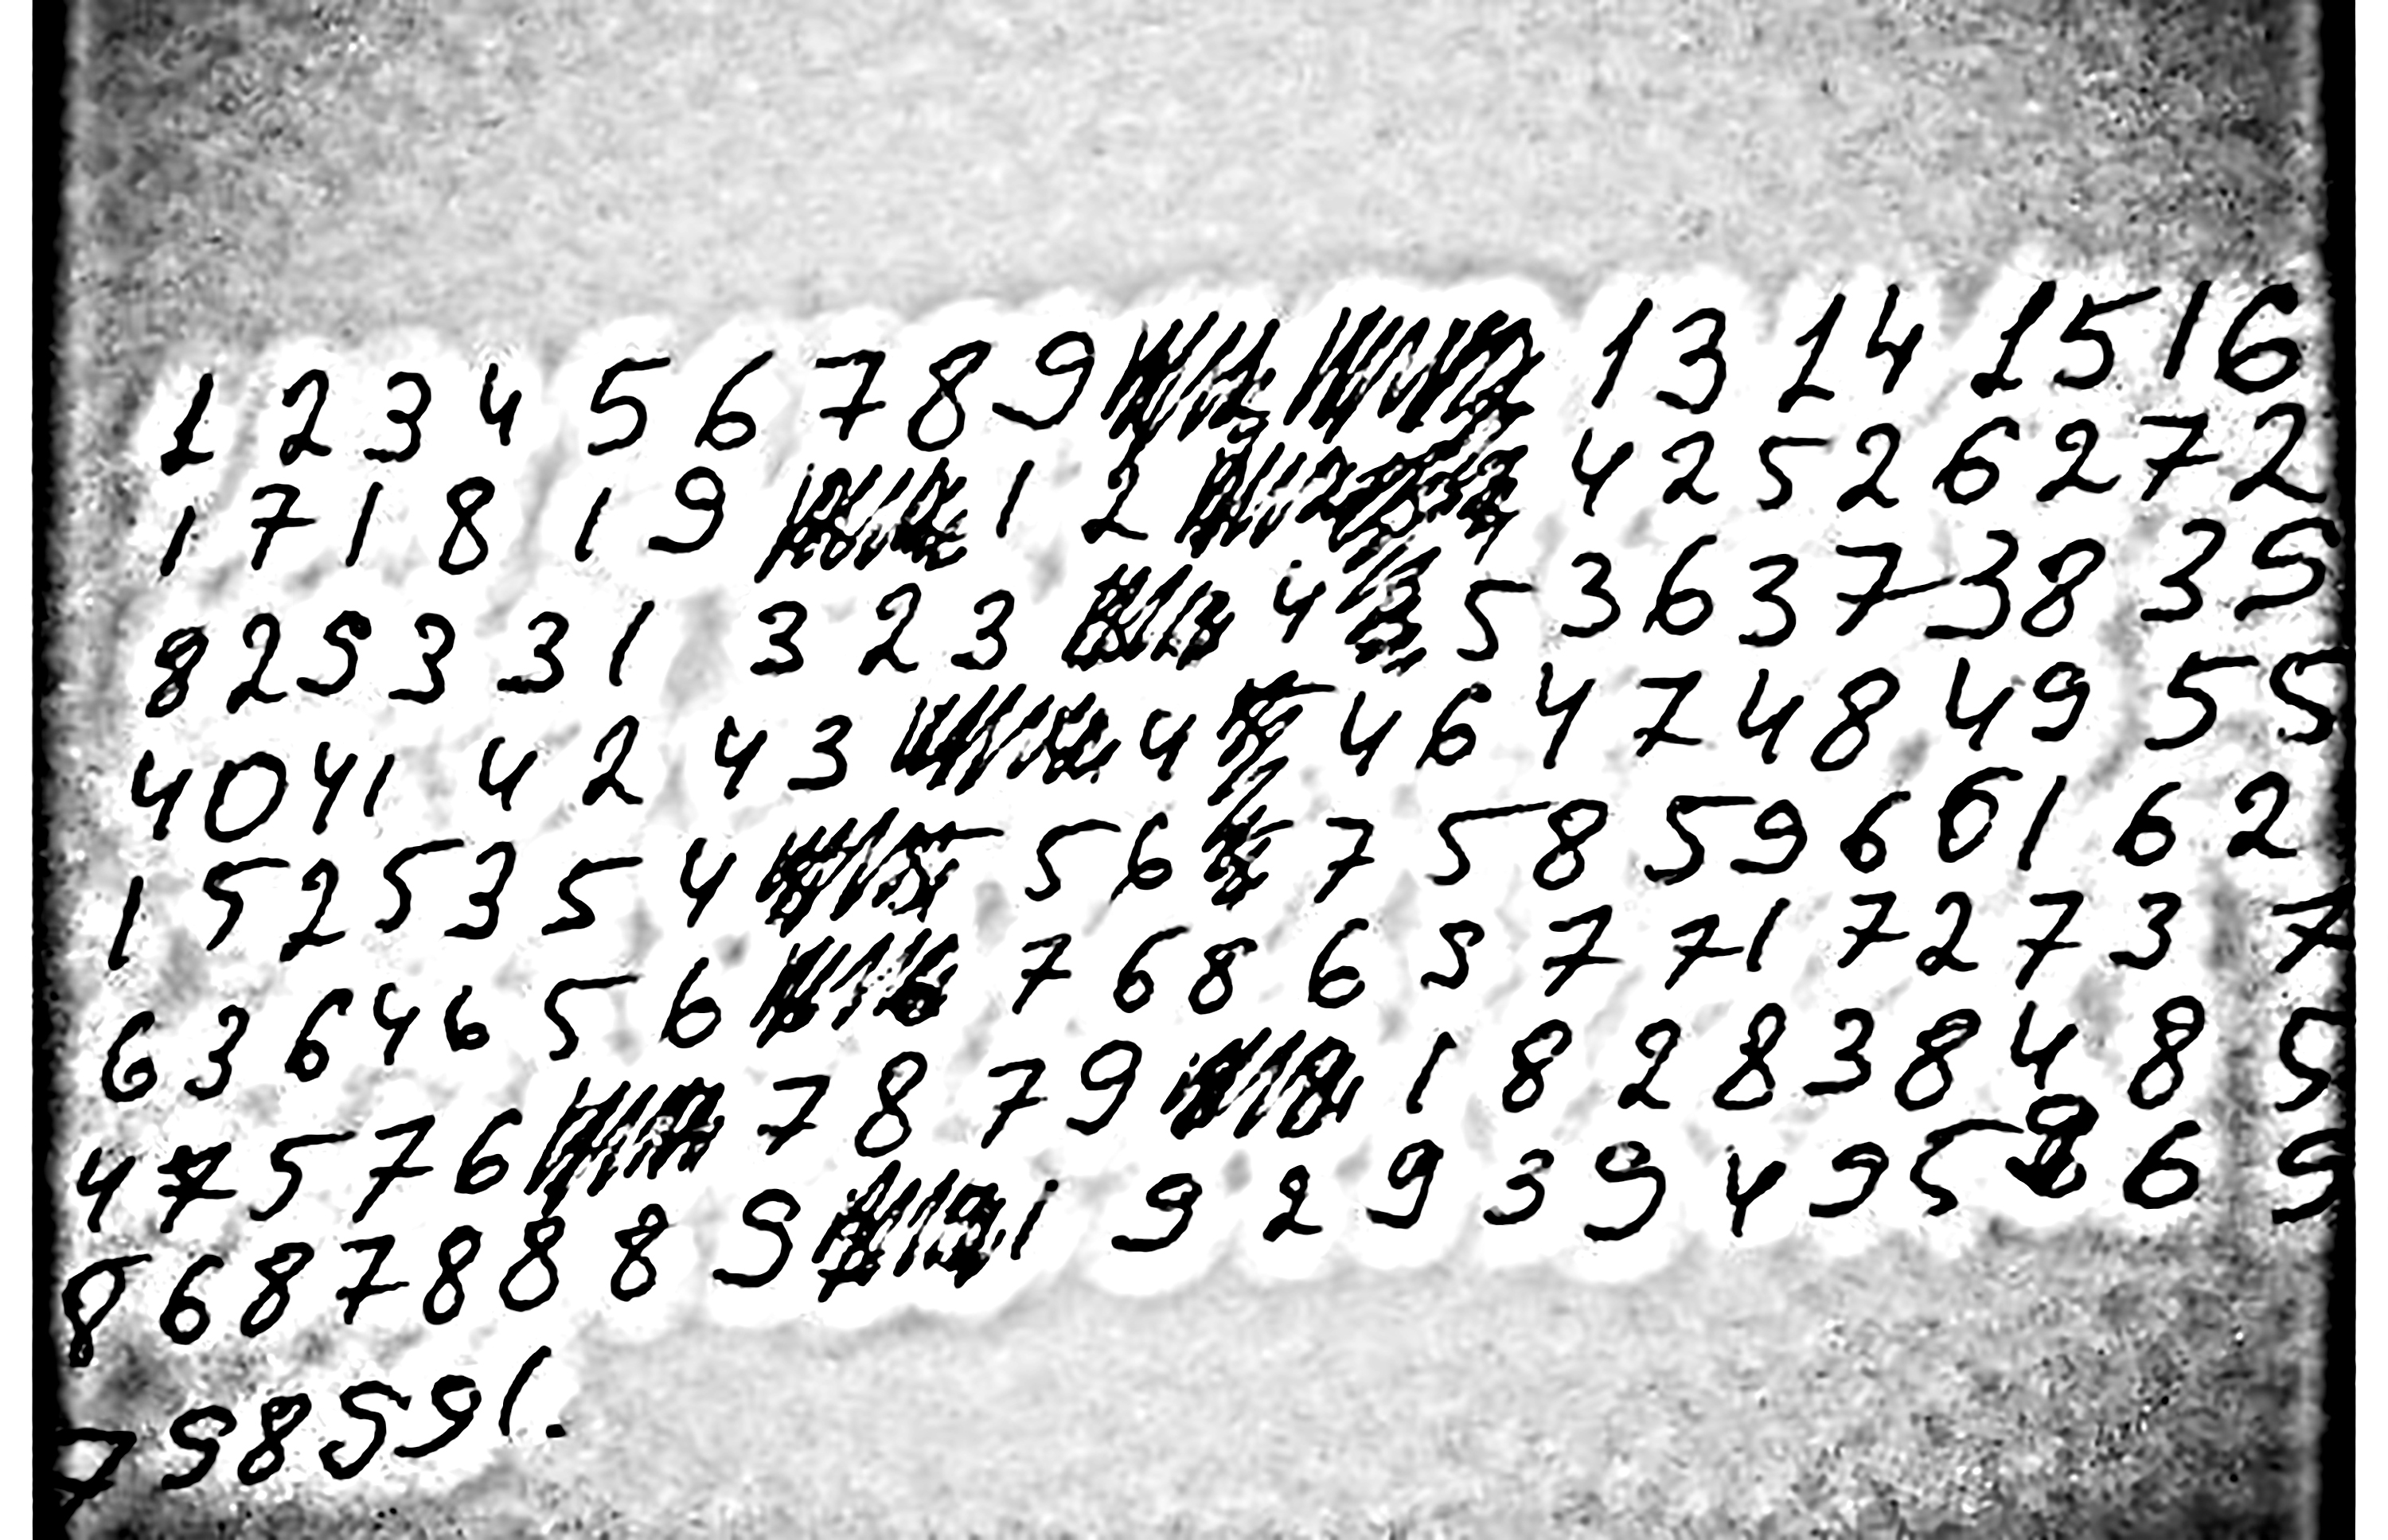 1 2 3 4 5 6 7 8 9 13 14 15 16
1 7 1 8 1 9 1 2 4 2 5 2 6 2 7 2
8 2 9 3 3 1 3 2 3 4 5 3 6 3 7 3 8 3 9
4 0 4 1 4 2 4 3 4 4 6 4 7 4 8 4 9 5 5
1 5 2 5 3 5 4 5 6 7 5 8 5 9 6 6 1 6 2
6 3 6 4 6 5 6 7 6 8 6 9 7 7 1 7 2 7 3 7
4 7 5 7 6 7 8 7 9 1 8 2 8 3 8 4 8 5
8 6 8 7 8 8 8 9 1 9 2 9 3 9 4 9 5 6 9
7 9 8 9 9 1.